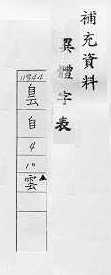 補充資料
異體字表
11844
昙
自
4
10
雲▲